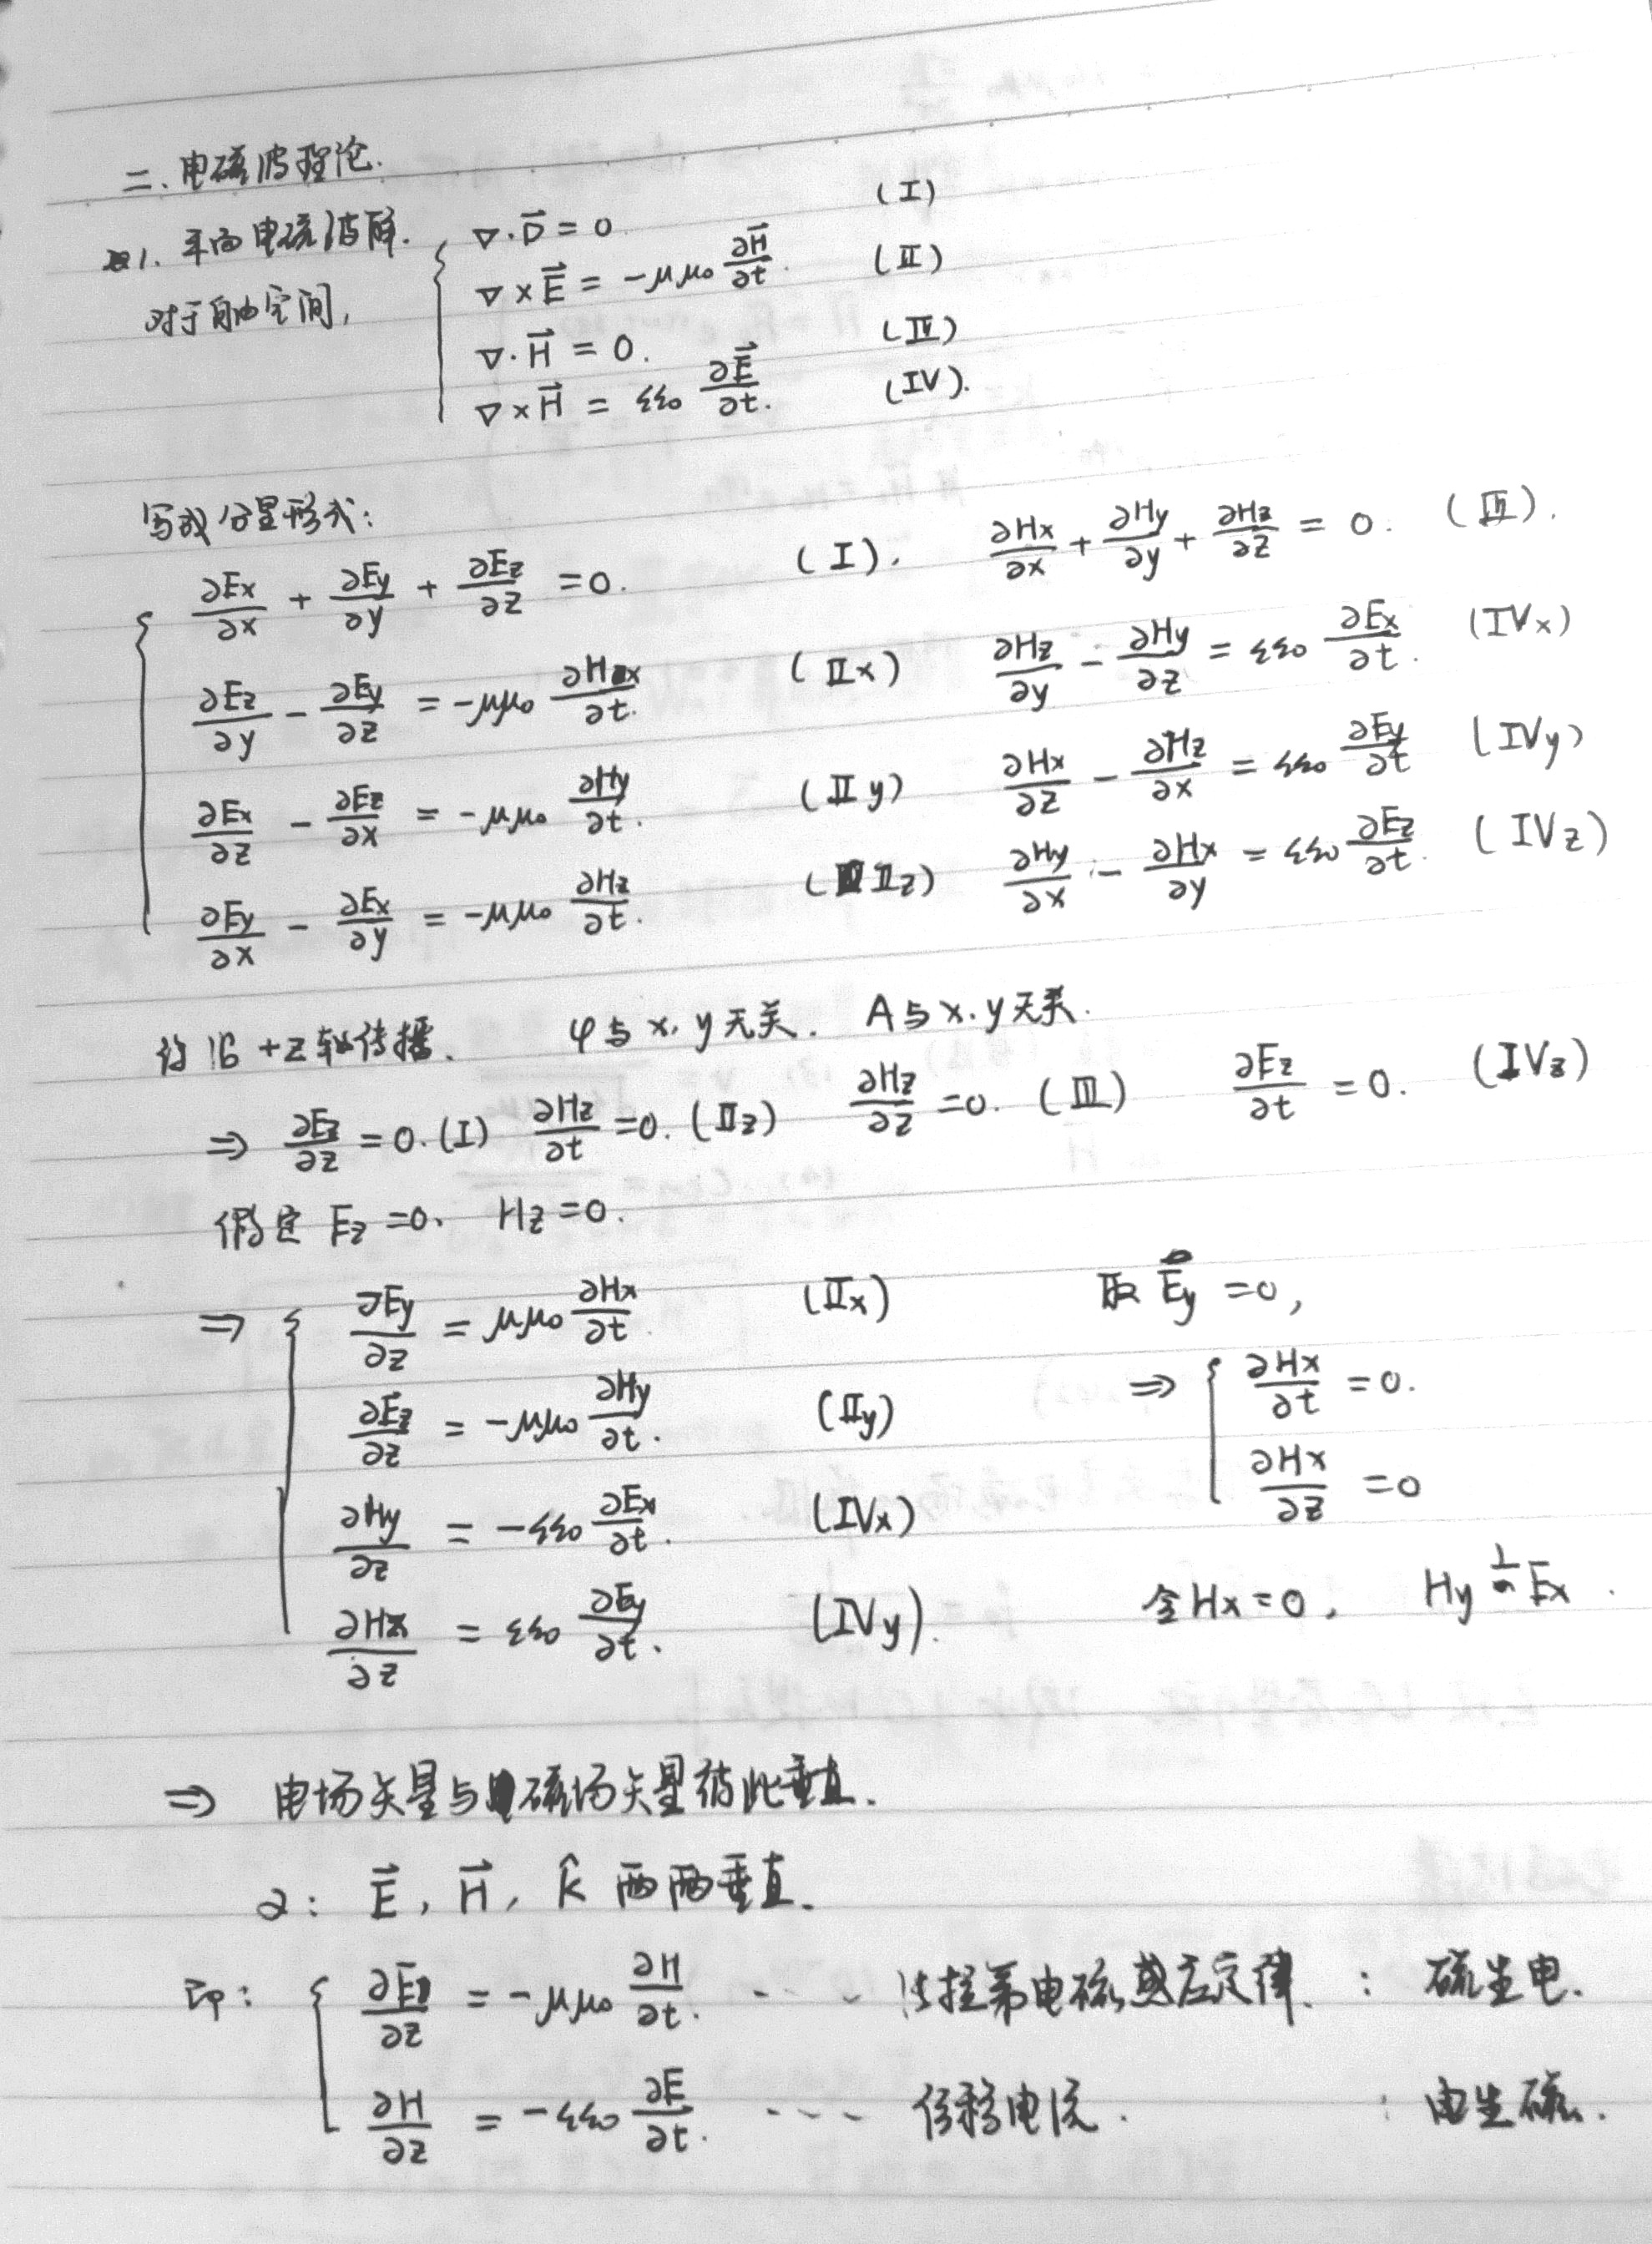 二、电磁波理论.
1. 平面电磁波解.
对于自由空间,
∇·D⃗ = 0 (I)
∇×E⃗ = -μμ₀ ∂H⃗/∂t. (II)
∇·H⃗ = 0. (III)
∇×H⃗ = εε₀ ∂E⃗/∂t. (IV).
写成分量形式:
∂Ex/∂x + ∂Ey/∂y + ∂Ez/∂z = 0. (I). ∂Hx/∂x + ∂Hy/∂y + ∂Hz/∂z = 0. (III).
∂Ez/∂y - ∂Ey/∂z = -μμ₀ ∂Hx/∂t. (IIx) ∂Hz/∂y - ∂Hy/∂z = εε₀ ∂Ex/∂t. (IVx)
∂Ex/∂z - ∂Ez/∂x = -μμ₀ ∂Hy/∂t. (IIy) ∂Hx/∂z - ∂Hz/∂x = εε₀ ∂Ey/∂t (IVy)
∂Ey/∂x - ∂Ex/∂y = -μμ₀ ∂Hz/∂t. (IIz) ∂Hy/∂x - ∂Hx/∂y = εε₀ ∂Ez/∂t. (IVz)
设沿+z轴传播. φ与x, y无关. A与x.y无关.
⇒ ∂Ez/∂z = 0. (I) ∂Hz/∂t = 0. (IIz) ∂Hz/∂z = 0. (III) ∂Ez/∂t = 0. (IVz)
假定 Ez = 0. Hz = 0.
⇒ ∂Ey/∂z = μμ₀ ∂Hx/∂t (IIx) 取 Ey = 0,
∂Ez/∂z = -μμ₀ ∂Hy/∂t. (IIy) ⇒ ∂Hx/∂t = 0.
∂Hy/∂z = -εε₀ ∂Ex/∂t. (IVx) ∂Hx/∂z = 0
∂Hx/∂z = εε₀ ∂Ey/∂t. (IVy). 令Hx = 0, Hy ⊥ Ex.
⇒ 电场矢量与磁场矢量彼此垂直.
2: E⃗, H⃗, k̂ 两两垂直.
即: ∂E/∂z = -μμ₀ ∂H/∂t. --- 法拉第电磁感应定律. : 磁生电.
∂H/∂z = -εε₀ ∂E/∂t. --- 位移电流. : 电生磁.